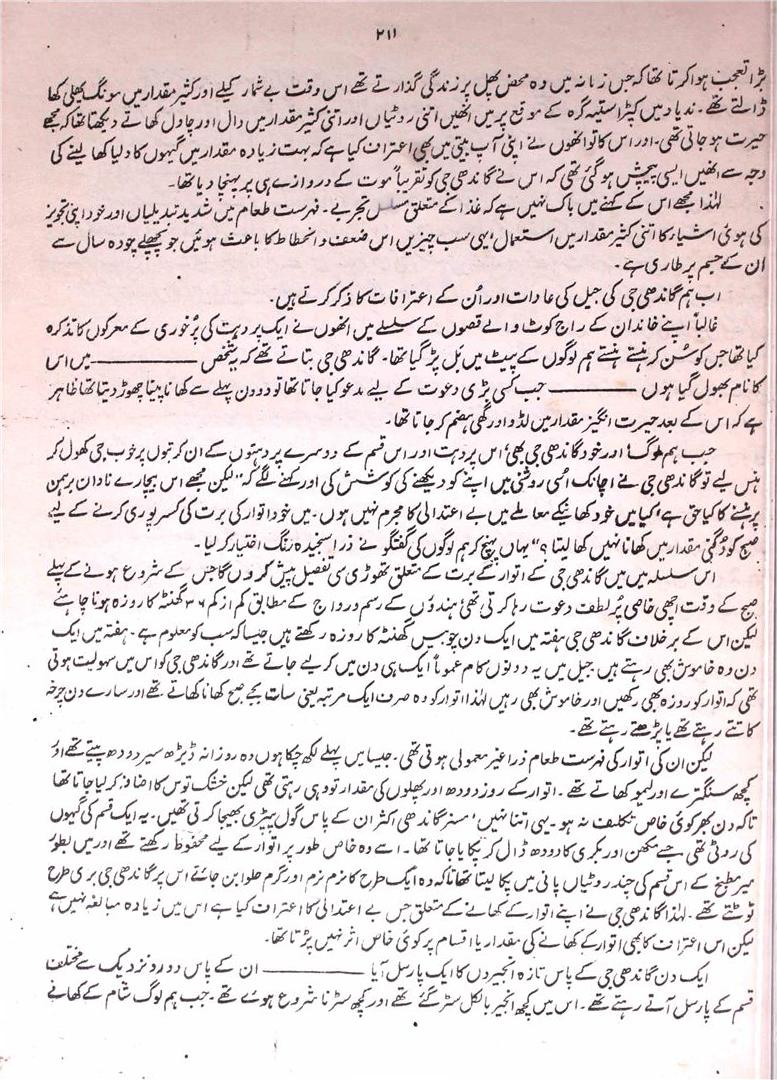 ۲۱۱
بڑا تعجب ہوا کرتا تھا کہ جس زمانہ میں وہ محض پھل پر زندگی گذارتے تھے اس وقت بے شمار کیلے اور کثیر مقدار میں مونگ پھلی کھا
ڈالتے تھے۔ ندیاد میں کیٹرا ستیہ گرہ کے موقع پر میں انھیں اتنی روٹیاں اور اتنی کثیر مقدار میں دال اور چاول کھاتے دیکھتا تھا کہ مجھے
حیرت ہو جاتی تھی۔ اور اس کا تو انھوں نے اپنی آپ بیتی میں بھی اعتراف کیا ہے کہ بہت زیادہ مقدار میں گیہوں کا دلیا کھا لینے کی
وجہ سے انھیں ایسی پیچش ہو گئی تھی کہ اس نے گاندھی جی کو تقریباً موت کے دروازے ہی پر پہنچا دیا تھا۔
لہٰذا مجھے اس کے کہنے میں باک نہیں ہے کہ غذا کے متعلق مسلسل تجربے۔ فہرست طعام میں شدید تبدیلیاں اور خود اپنی تجویز
کی ہوئی اشیار کا اتنی کثیر مقدار میں استعمال، یہی سب چیزیں اس ضعف و انحطاط کا باعث ہوئیں جو پچھلے چودہ سال سے
ان کے جسم پر طاری ہے۔
اب ہم گاندھی جی کی جیل کی عادات اور اُن کے اعترافات کا ذکر کرتے ہیں۔
غالباً اپنے خاندان کے راج کوٹ والے قصوں کے سلسلے میں انھوں نے ایک پردہت کی پُر خوری کے معرکوں کا تذکرہ
کیا تھا جس کو سُن کر ہنستے ہنستے ہم لوگوں کے پیٹ میں بَل پڑ گیا تھا۔ گاندھی جی بتاتے تھے کہ یہ شخص ——— میں اس
کا نام بھول گیا ہوں ——— جب کسی بڑی دعوت کے لیے مدعو کیا جاتا تھا تو دو دن پہلے سے کھانا پینا چھوڑ دیتا تھا ظاہر
ہے کہ اس کے بعد حیرت انگیز مقدار میں لڈو اور گھی ہضم کر جاتا تھا۔
جب ہم لوگ اور خود گاندھی جی بھی اس پردہت اور اس قسم کے دوسرے پردہتوں کے ان کرتبوں پر خوب جی کھول کر
ہنس لیے تو گاندھی جی نے اچانک اُسی روشنی میں اپنے کو دیکھنے کی کوشش کی اور کہنے لگے کہ "لیکن مجھے اس بیچارے نادان برہمن
پر ہنسنے کا کیا حق ہے، کیا میں خود کھانے کے معاملے میں بے اعتدالی کا مجرم نہیں ہوں۔ میں خود اتوار کی برت کی کسر پوری کرنے کے لیے
صبح کو دُگنی مقدار میں کھانا نہیں کھا لیتا؟" یہاں پہنچ کر ہم لوگوں کی گفتگو نے ذرا سنجیدہ رنگ اختیار کر لیا۔
اس سلسلہ میں میں گاندھی جی کے اتوار کے برت کے متعلق تھوڑی سی تفصیل پیش کروں گا جس کے شروع ہونے کے پہلے
صبح کے وقت اچھی خاصی پُر لطف دعوت رہا کرتی تھی، ہندوؤں کے رسم و رواج کے مطابق کم از کم ۳۶ گھنٹہ کا روزہ ہونا چاہئے
لیکن اس کے برخلاف گاندھی جی ہفتہ میں ایک دن چوبیس گھنٹہ کا روزہ رکھتے ہیں جیسا کہ سب کو معلوم ہے۔ ہفتہ میں ایک
دن وہ خاموش بھی رہتے ہیں۔ جیل میں یہ دونوں کام عموماً ایک ہی دن میں کر لیے جاتے تھے اور گاندھی جی کو اس میں سہولیت ہوتی
تھی کہ اتوار کو روزہ بھی رکھیں اور خاموش بھی رہیں لہٰذا اتوار کو وہ صرف ایک مرتبہ یعنی سات بجے صبح کھانا کھاتے تھے اور سارے دن چرخہ
کاتتے رہتے تھے یا پڑھتے رہتے تھے۔
لیکن ان کی اتوار کی فہرست طعام ذرا غیر معمولی ہوتی تھی۔ جیسا میں پہلے لکھ چکا ہوں وہ روزانہ ڈیڑھ سیر دودھ پیتے تھے اور
کچھ سنگترے اور لیمو کھاتے تھے۔ اتوار کے روز دودھ اور پھلوں کی مقدار تو وہی رہتی تھی لیکن خشک توس کا اضافہ کر لیا جاتا تھا
تاکہ دن بھر کوئی خاص تکلیف نہ ہو۔ یہی اتنا نہیں، مسز گاندھی اکثر ان کے پاس گول پیڑی بھیجا کرتی تھیں۔ یہ ایک قسم کی گیہوں
کی روٹی تھی جسے مکھن اور بکری کا دودھ ڈال کر پکایا جاتا تھا۔ اسے وہ خاص طور پر اتوار کے لیے محفوظ رکھتے تھے اور میں بطور
میر مطبخ کے اس قسم کی چند روٹیاں پانی میں پکا لیتا تھا تاکہ وہ ایک طرح کا نرم نرم اور گرم حلوا بن جائے اس پر گاندھی جی بری طرح
ٹوٹتے تھے۔ لہٰذا گاندھی جی نے اپنے اتوار کے کھانے کے متعلق جس بے اعتدالی کا اعتراف کیا ہے اس میں زیادہ مبالغہ نہیں ہے
لیکن اس اعتراف کا بھی اتوار کے کھانے کی مقدار یا اقسام پر کوئی خاص اثر نہیں پڑتا تھا۔
ایک دن گاندھی جی کے پاس تازہ انجیروں کا ایک پارسل آیا ——— ان کے پاس دور و نزدیک سے مختلف
قسم کے پارسل آتے رہتے تھے۔ اس میں کچھ انجیر بالکل سڑ گئے تھے اور کچھ سڑنا شروع ہوئے تھے۔ جب ہم لوگ شام کے کھانے